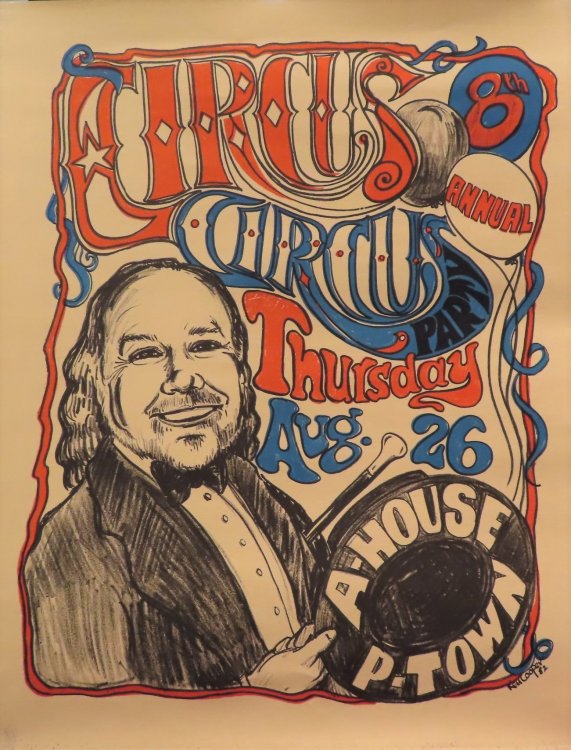 CIRCUS
8th
ANNUAL
CIRCUS
PARTY
Thursday
Aug. 26
A-HOUSE
P-TOWN